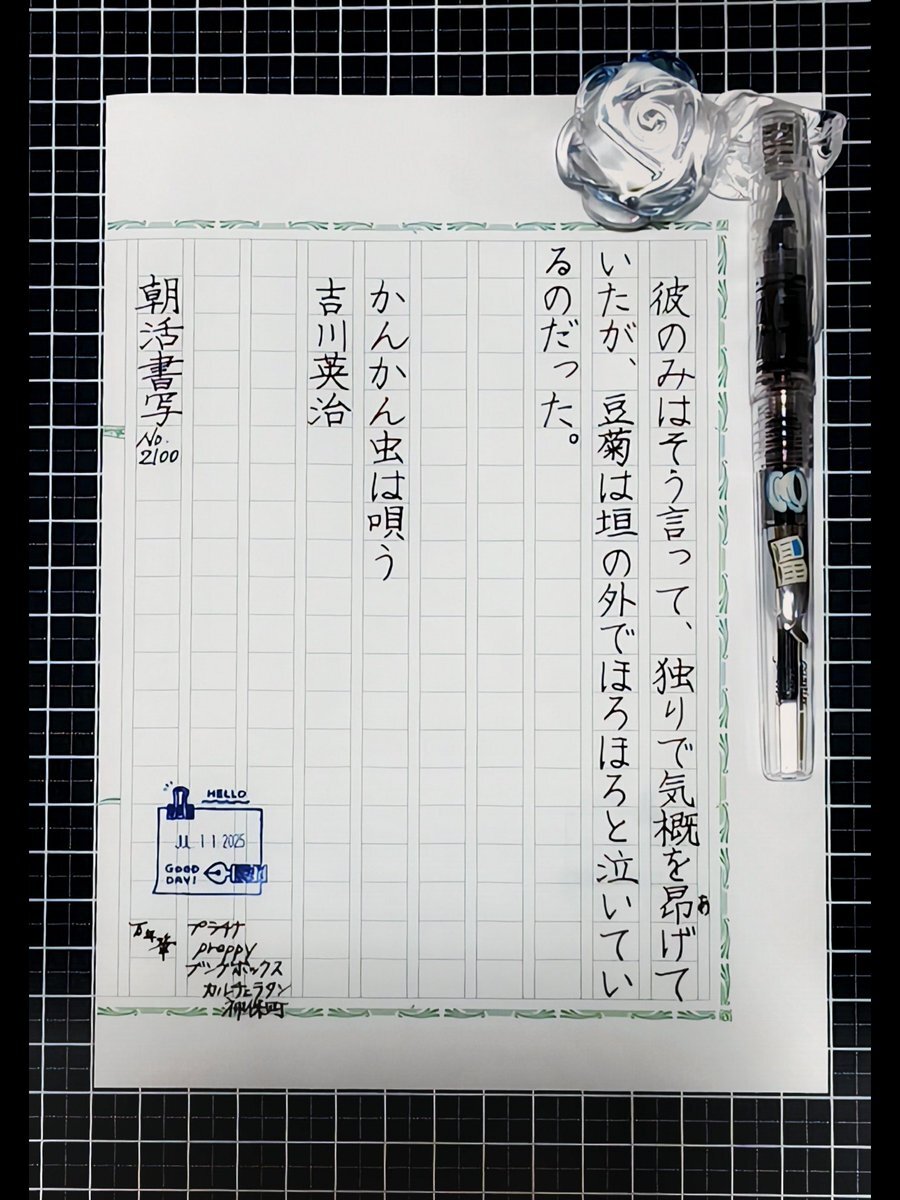 彼のみはそう言って、独りで気概を昂げて
あ
いたが、豆菊は垣の外でほろほろと泣いてい
るのだった。
かんかん虫は唄う
吉川英治
朝活書写
No.
2100
HELLO
JUL 11 2025
GOOD
DAY!
プラチナ
preppy
ブングボックス
カルチェラタン
神保町
万年筆